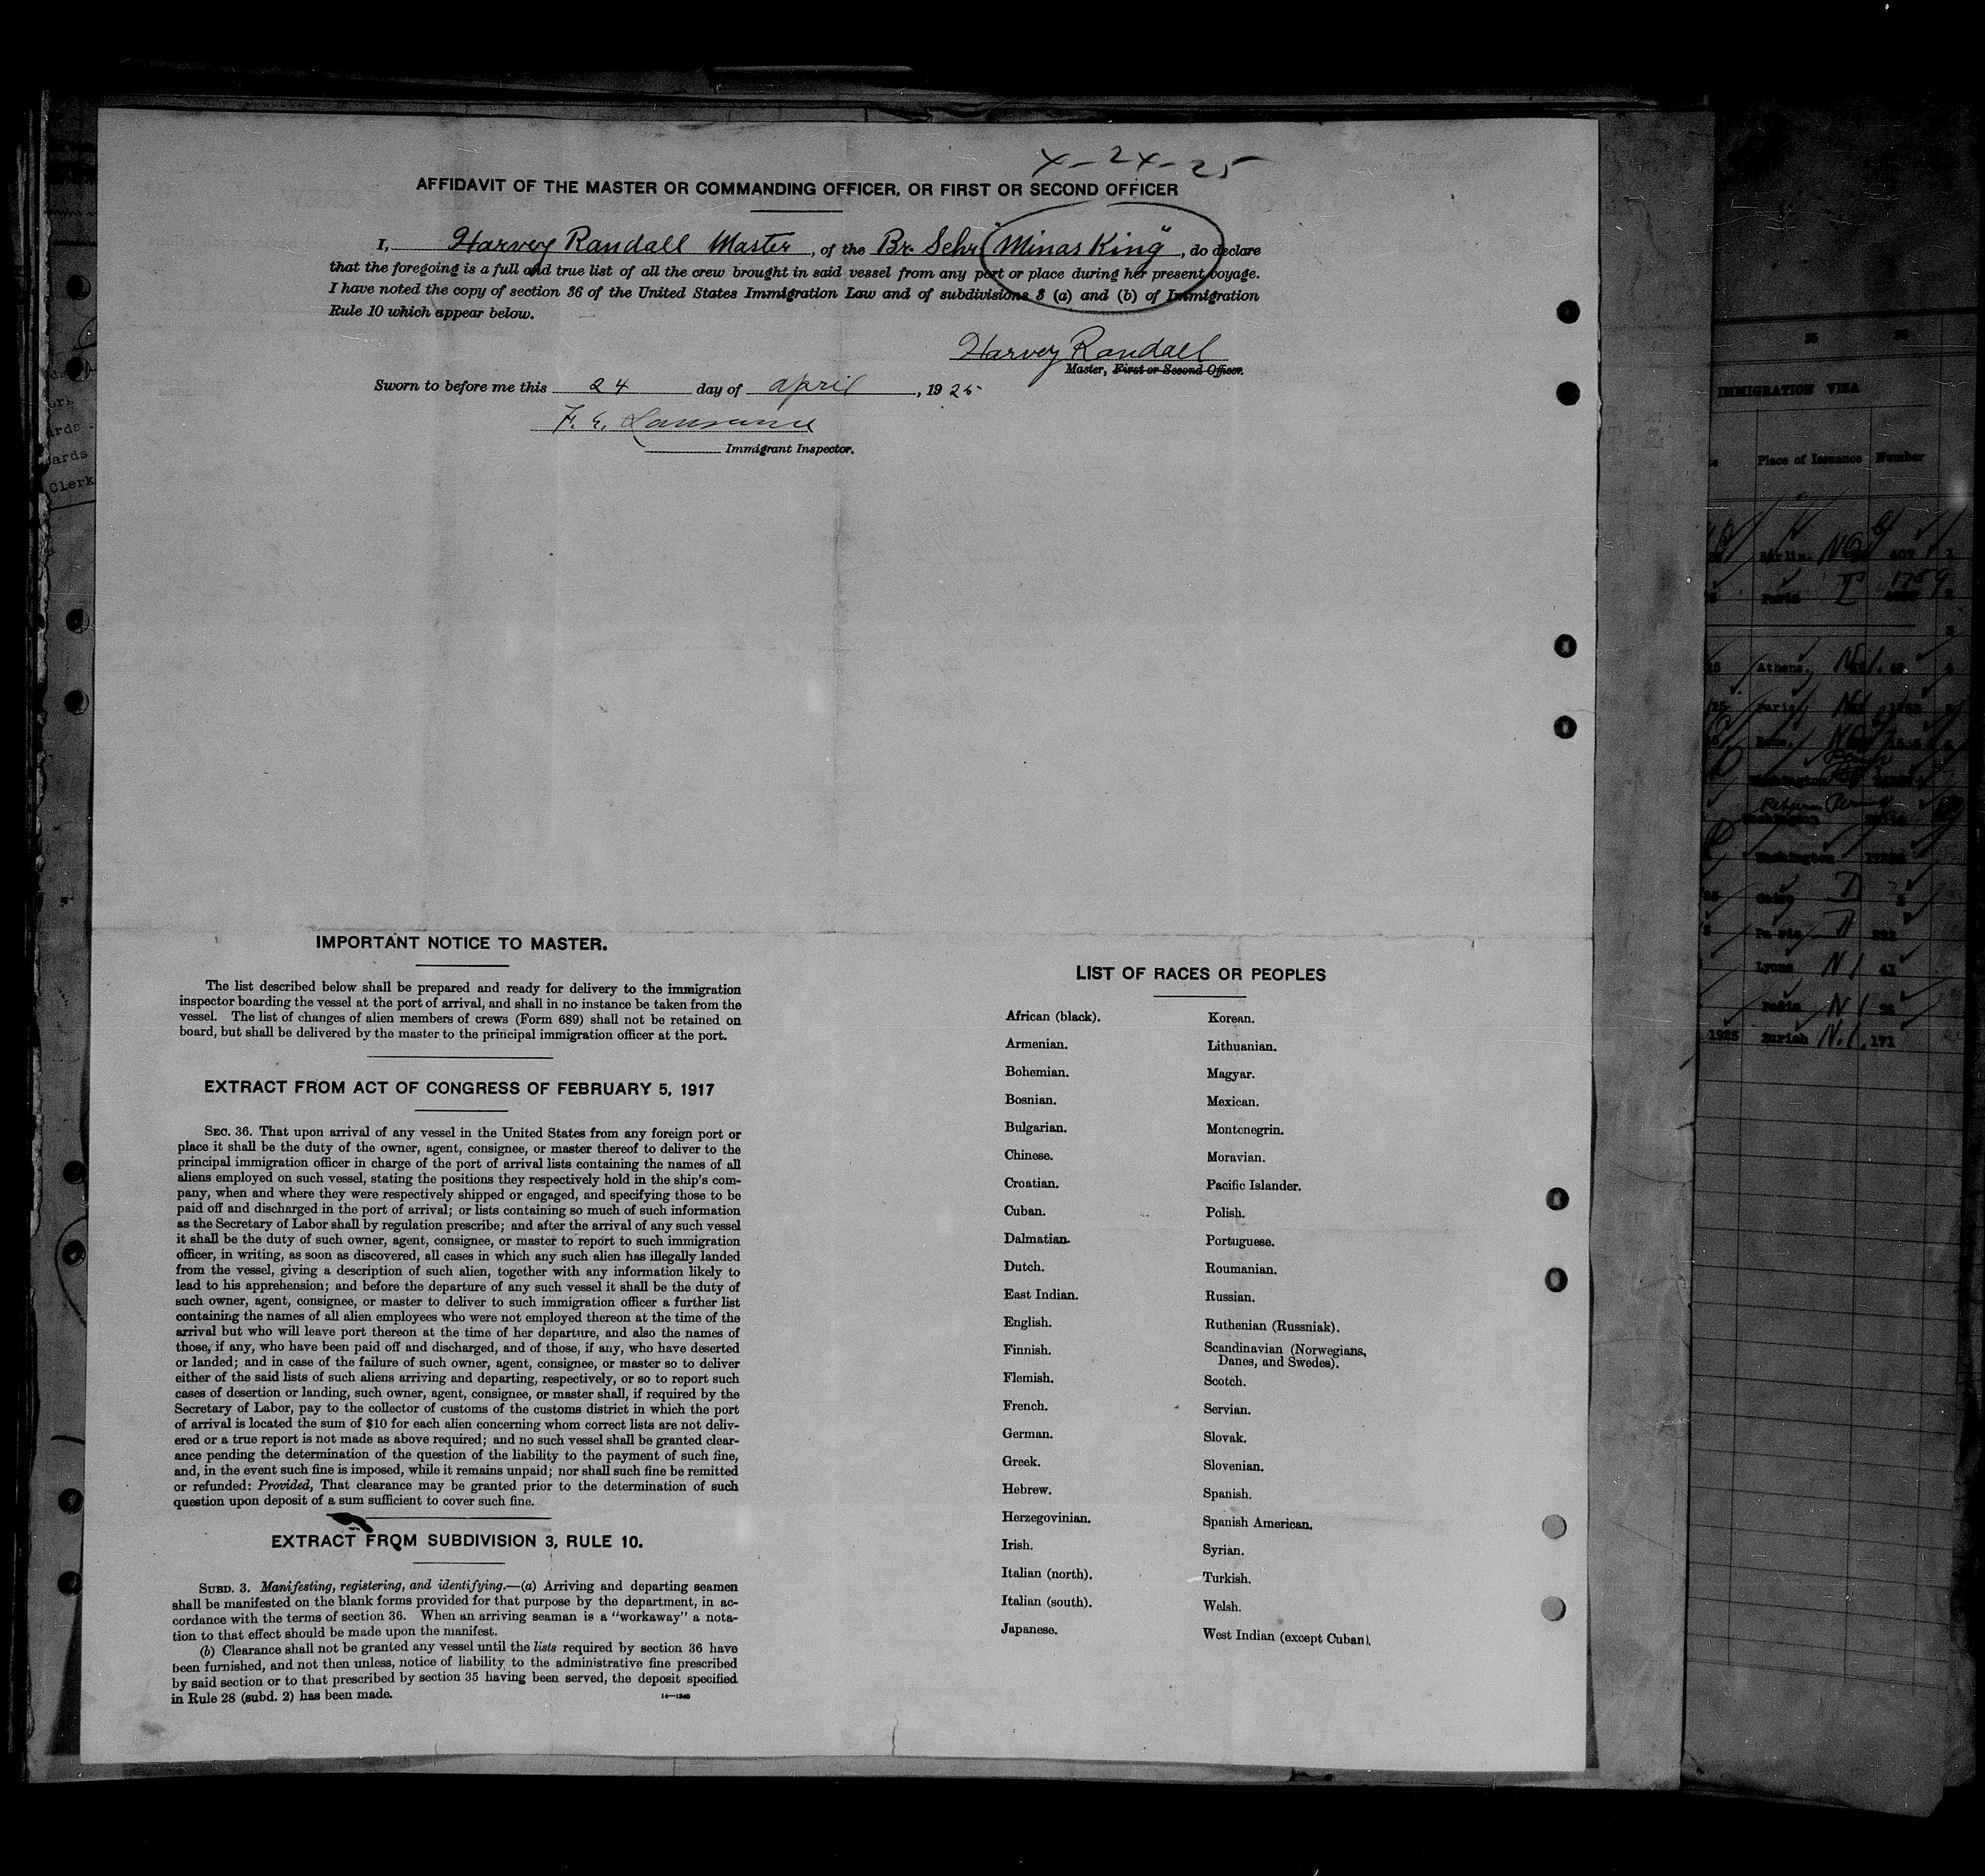 4-24-25
AFFIDAVIT OF THE MASTER OR COMMANDING OFFICER, OR FIRST OR SECOND OFFICER
I, Harvey Randall Master, of the Br. Schr "Minas King", do declare
that the foregoing is a full and true list of all the crew brought in said vessel from any port or place during her present voyage.
I have noted the copy of section 36 of the United States Immigration Law and of subdivisions 3 (a) and (b) of Immigration
Rule 10 which appear below.
Harvey Randall
Master, First or Second Officer.
Sworn to before me this 24 day of april, 1925
F. E.
Immigrant Inspector.
IMPORTANT NOTICE TO MASTER.
The list described below shall be prepared and ready for delivery to the immigration
inspector boarding the vessel at the port of arrival, and shall in no instance be taken from the
vessel. The list of changes of alien members of crews (Form 689) shall not be retained on
board, but shall be delivered by the master to the principal immigration officer at the port.
EXTRACT FROM ACT OF CONGRESS OF FEBRUARY 5, 1917
SEC. 36. That upon arrival of any vessel in the United States from any foreign port or
place it shall be the duty of the owner, agent, consignee, or master thereof to deliver to the
principal immigration officer in charge of the port of arrival lists containing the names of all
aliens employed on such vessel, stating the positions they respectively hold in the ship's com-
pany, when and where they were respectively shipped or engaged, and specifying those to be
paid off and discharged in the port of arrival; or lists containing so much of such information
as the Secretary of Labor shall by regulation prescribe; and after the arrival of any such vessel
it shall be the duty of such owner, agent, consignee, or master to report to such immigration
officer, in writing, as soon as discovered, all cases in which any such alien has illegally landed
from the vessel, giving a description of such alien, together with any information likely to
lead to his apprehension; and before the departure of any such vessel it shall be the duty of
such owner, agent, consignee, or master to deliver to such immigration officer a further list
containing the names of all alien employees who were not employed thereon at the time of the
arrival but who will leave port thereon at the time of her departure, and also the names of
those, if any, who have been paid off and discharged, and of those, if any, who have deserted
or landed; and in case of the failure of such owner, agent, consignee, or master so to deliver
either of the said lists of such aliens arriving and departing, respectively, or so to report such
cases of desertion or landing, such owner, agent, consignee, or master shall, if required by the
Secretary of Labor, pay to the collector of customs of the customs district in which the port
of arrival is located the sum of $10 for each alien concerning whom correct lists are not deliv-
ered or a true report is not made as above required; and no such vessel shall be granted clear-
ance pending the determination of the question of the liability to the payment of such fine,
and, in the event such fine is imposed, while it remains unpaid; nor shall such fine be remitted
or refunded: Provided, That clearance may be granted prior to the determination of such
question upon deposit of a sum sufficient to cover such fine.
EXTRACT FROM SUBDIVISION 3, RULE 10.
SUBD. 3. Manifesting, registering, and identifying.—(a) Arriving and departing seamen
shall be manifested on the blank forms provided for that purpose by the department, in ac-
cordance with the terms of section 36. When an arriving seaman is a "workaway" a nota-
tion to that effect should be made upon the manifest.
(b) Clearance shall not be granted any vessel until the lists required by section 36 have
been furnished, and not then unless, notice of liability to the administrative fine prescribed
by said section or to that prescribed by section 35 having been served, the deposit specified
in Rule 28 (subd. 2) has been made.
LIST OF RACES OR PEOPLES
African (black).
Armenian.
Bohemian.
Bosnian.
Bulgarian.
Chinese.
Croatian.
Cuban.
Dalmatian.
Dutch.
East Indian.
English.
Finnish.
Flemish.
French.
German.
Greek.
Hebrew.
Herzegovinian.
Irish.
Italian (north).
Italian (south).
Japanese.
Korean.
Lithuanian.
Magyar.
Mexican.
Montenegrin.
Moravian.
Pacific Islander.
Polish.
Portuguese.
Roumanian.
Russian.
Ruthenian (Russniak).
Scandinavian (Norwegians,
Danes, and Swedes).
Scotch.
Servian.
Slovak.
Slovenian.
Spanish.
Spanish American.
Syrian.
Turkish.
Welsh.
West Indian (except Cuban).
Clerk
IMMIGRATION VISA
Place of Issuance Number
Berlin.
Paris
Athens.
Paris
Washington
Washington
Paris
Lyons N I
Paris N I
1925 Zurich N.I. 171